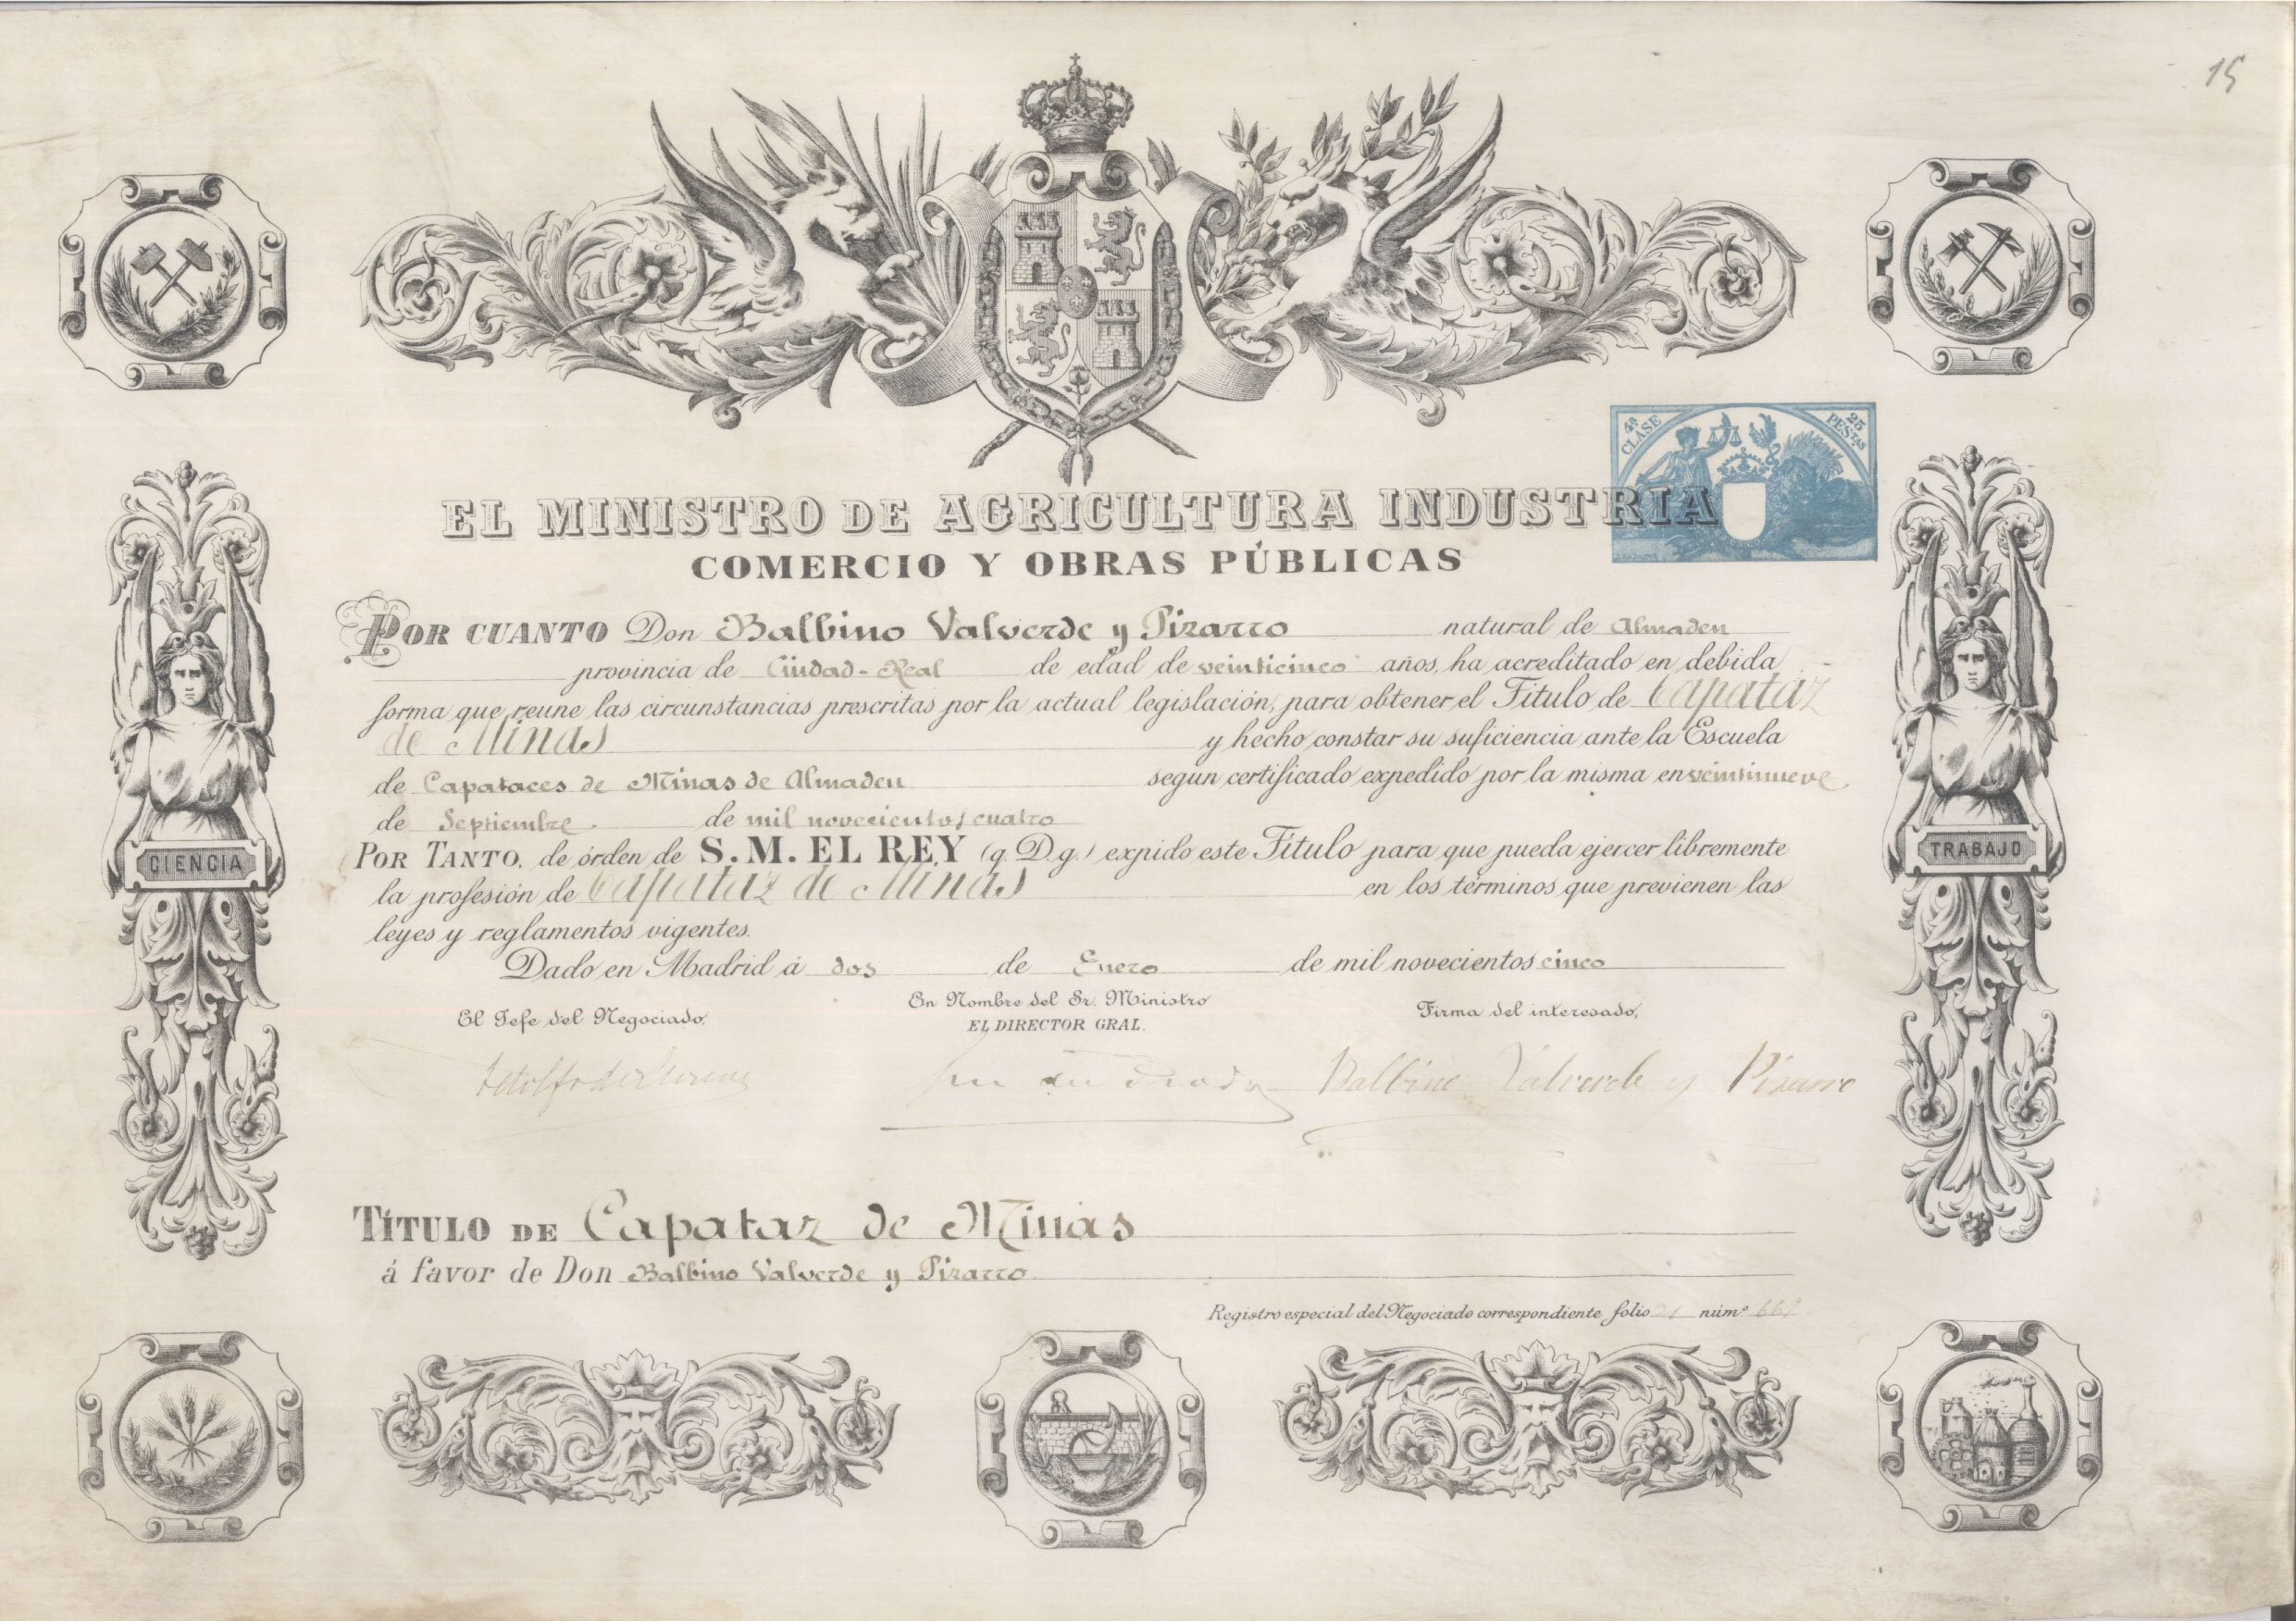 15
4ª CLASE
25 PESTAS
EL MINISTRO DE AGRICULTURA INDUSTRIA
COMERCIO Y OBRAS PÚBLICAS
POR CUANTO Don Balbino Valverde y Pizarro natural de Almaden
provincia de Ciudad-Real de edad de veinticinco años, ha acreditado en debida
forma que reune las circunstancias prescritas por la actual legislación, para obtener el Titulo de Capataz
de Minas y hecho constar su suficiencia ante la Escuela
de Capataces de Minas de Almaden segun certificado expedido por la misma en veintinueve
de Septiembre de mil novecientos cuatro
POR TANTO, de órden de S. M. EL REY (q. D. g.) expido este Titulo para que pueda ejercer libremente
la profesión de Capataz de Minas en los términos que previenen las
leyes y reglamentos vigentes.
Dado en Madrid á dos de Enero de mil novecientos cinco
El Jefe del Negociado,
En Nombre del Sr. Ministro
EL DIRECTOR GRAL.
Firma del interesado,
Balbino Valverde y Pizarro
CIENCIA
TRABAJO
TÍTULO DE Capataz de Minas
á favor de Don Balbino Valverde y Pizarro
Registro especial del Negociado correspondiente folio 21 núm.º